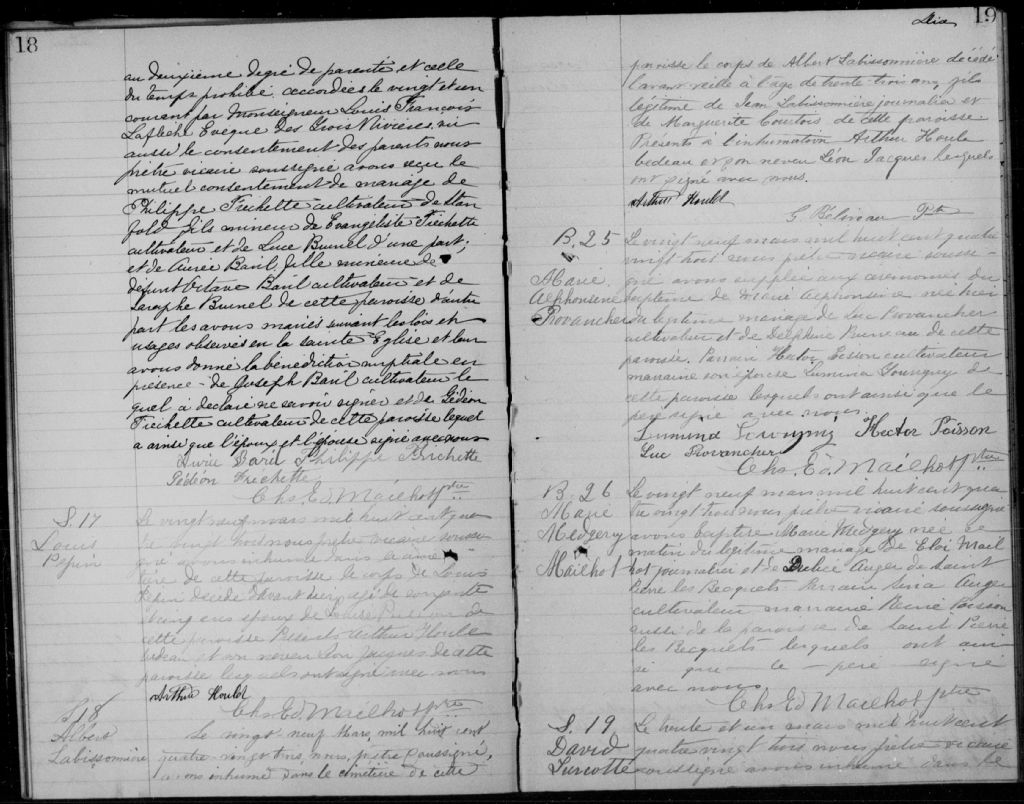 18
au deuxième degré de parenté et celle
du temps prohibé accordées le vingt et un
courant par Monseigneur Louis François
Laflèche Evêque des Trois Rivières vu
aussi le consentement des parents nous
prêtre vicaire soussigné avons reçu le
mutuel consentement de mariage de
Philippe Frechette cultivateur de Stan
fold fils mineur de Evangeliste Frechette
cultivateur et de Luce Brunel d'une part;
et de Auree Baril fille mineure de
défunt Octave Baril cultivateur et de
Brunel de cette paroisse d'autre
part les avons mariés suivant les lois et
usages observés en la sainte Eglise et leur
avons donné la bénédiction nuptiale en
présence de Joseph Baril cultivateur le
quel a déclaré ne savoir signer et de Gédéon
Frechette cultivateur de cette paroisse lequel
a ainsi que l'époux et l'épouse signé avec nous
Baril Philippe Frichette
Gédéon Frechette
Chs. Ed. Mailhot ptre
S. 17
Louis
Pépin
Le vingt neuf mars mil huit cent qua
tre vingt trois nous prêtre vicaire soussi
gné avons inhumé dans le cime
tière de cette paroisse le corps de Louis
Pépin décédé l'avant hier agé de soixante
ans époux de Louise de
cette paroisse Présents Arthur Houle
bedeau et son neveu Léon Jacques de cette
paroisse lesquels ont signé avec nous
Arthur Houle
Chs. Ed. Mailhot ptre
S. 18
Albert
Labissonnière
Le vingt neuf Mars, mil huit cent
quatre vingt trois, nous, prêtre soussigné,
avons inhumé dans le cimetière de cette
Dix
19
paroisse le corps de Albert Labissonnière décédé
l'avant veille à l'âge de trente trois ans, fils
légitime de Jean Labissonnière journalier et
de Marguerite Courtois de cette paroisse
Présents à l'inhumation Arthur Houle
bedeau et son neveu Léon Jacques lesquels
ont signé avec nous.
Arthur Houle
G. Béliveau Ptre
B. 25
Marie
Alphonsine
Provancher
Le vingt neuf mars mil huit cent quatre
vingt trois nous prêtre vicaire soussi
gné avons suppléé aux cérémonies du
baptême de Marie Alphonsine née hier
du légitime mariage de Luc Provancher
cultivateur et de Delphine de cette
paroisse. Parrain Hector Poisson cultivateur
marraine son épouse Lumina de
cette paroisse lesquels ont ainsi que le
père signé avec nous.
Lumina Hector Poisson
Luc Provancher
Chs. Ed. Mailhot ptre
B. 26
Marie
Medgery
Mailhot
Le vingt neuf mars mil huit cent qua
tre vingt trois nous prêtre vicaire soussigné
avons baptisé Marie Medgery née ce
matin du légitime mariage de Eloi Mail
hot journalier et de Auger de Saint
Pierre les Becquets Parrain Auger
cultivateur marraine Poisson
aussi de la paroisse de Saint Pierre
les Becquets lesquels ont ain
si que le père signé
avec nous
Chs. Ed. Mailhot ptre
S. 19
David
Turcotte
Le trente et un mars mil huit cent
quatre vingt trois nous prêtre vicaire
soussigné avons inhumé dans le